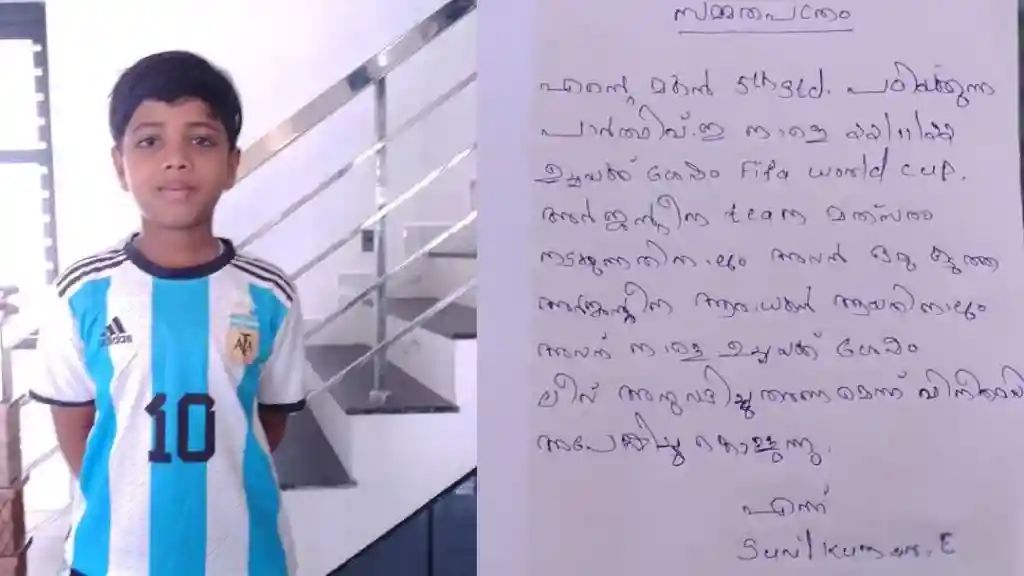 adidas
AFA
10
സമ്മതപത്രം
എന്റെ മകൻ 5th std. പഠിക്കുന്ന
പാർത്ഥിവ്.ഇ നാളെ
ഉച്ചയ്ക്ക് ശേഷം Fifa world cup.
അർജന്റീന team മത്സരം
നടക്കുന്നതിനാലും അവൻ ഒരു കടുത്ത
അർജന്റീന ആരാധകൻ ആയതിനാലും
അവന് നാളെ ഉച്ചയ്ക്ക് ശേഷം
ലീവ് അനുവദിച്ചു തരണമെന്ന് വിനീതമായി
അപേക്ഷിച്ചു കൊള്ളുന്നു.
എന്ന്
Sunil Kumar. E